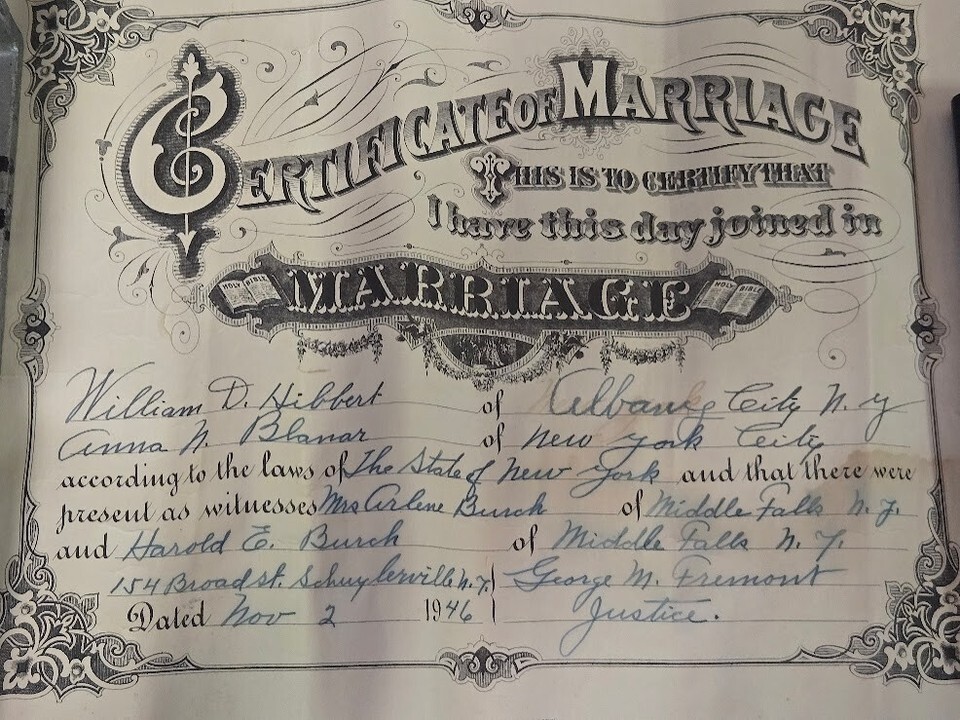 CERTIFICATE OF MARRIAGE
THIS IS TO CERTIFY THAT
I have this day joined in
HOLY BIBLE MARRIAGE HOLY BIBLE
William D. Hibbert of Albany City N.Y
Anna N. Blanar of New York City
according to the laws of The State of New York and that there were
present as witnesses Mrs Arlene Burch of Middle Falls N.Y.
and Harold E. Burch of Middle Falls N.Y.
154 Broad St. Schuylerville N.Y. George M. Fremont
Dated Nov 2 1946 Justice.